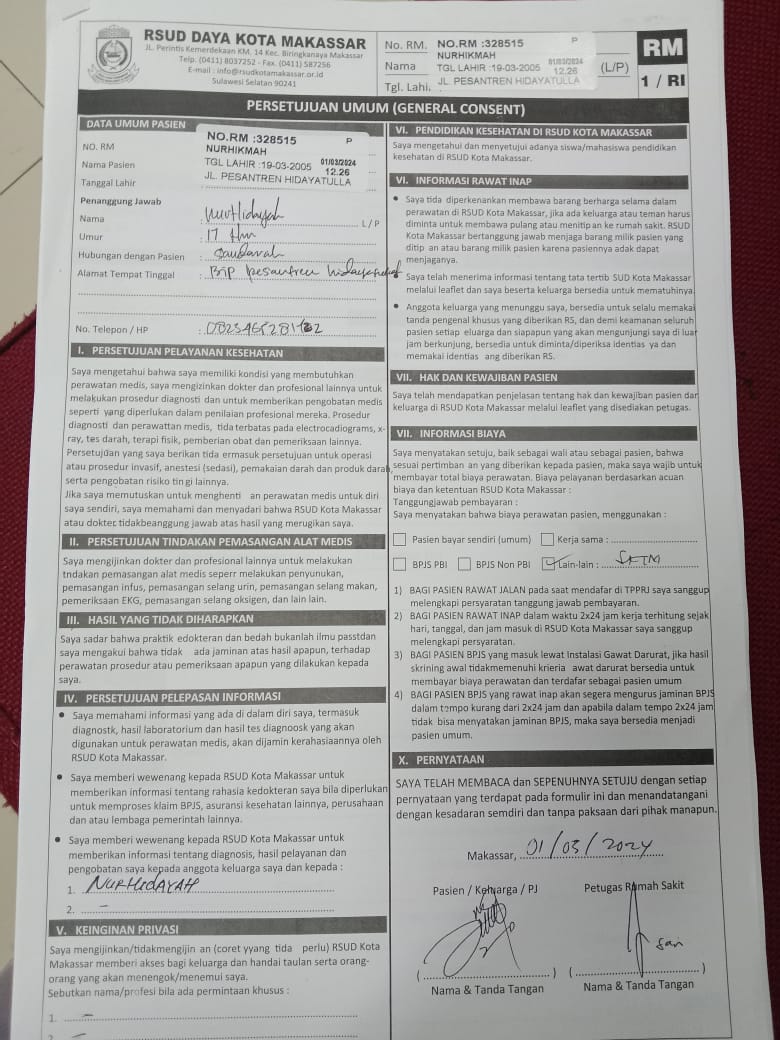 RSUD DAYA KOTA MAKASSAR
JL. Perintis Kemerdekaan KM. 14 Kec. Biringkanaya Makassar
Telp. (0411) 8037252 - Fax. (0411) 587256
E-mail : info@rsudkotamakassar.or.id
Sulawesi Selatan 90241
No. RM. NO.RM :328515 P
Nama NURHIKMAH
TGL LAHIR :19-03-2005 01/03/2024
12.26 (L/P)
Tgl. Lahi. JL. PESANTREN HIDAYATULLA
RM
1 / RI
PERSETUJUAN UMUM (GENERAL CONSENT)
DATA UMUM PASIEN
NO. RM NO.RM :328515 P
Nama Pasien NURHIKMAH
TGL LAHIR :19-03-2005 01/03/2024
12.26
Tanggal Lahir JL. PESANTREN HIDAYATULLA
Penanggung Jawab
Nama : Nurhidayah L / P
Umur : 17 thn
Hubungan dengan Pasien : Saudarah
Alamat Tempat Tinggal : BTP pesantren
No. Telepon / HP :
I. PERSETUJUAN PELAYANAN KESEHATAN
Saya mengetahui bahwa saya memiliki kondisi yang membutuhkan
perawatan medis, saya mengizinkan dokter dan profesional lainnya untuk
melakukan prosedur diagnosti dan untuk memberikan pengobatan medis
seperti yang diperlukan dalam penilaian profesional mereka. Prosedur
diagnosti dan perawattan medis, tida terbatas pada electrocadiograms, x-
ray, tes darah, terapi fisik, pemberian obat dan pemeriksaan lainnya.
Persetujuan yang saya berikan tida ermasuk persetujuan untuk operasi
atau prosedur invasif, anestesi (sedasi), pemakaian darah dan produk darah
serta pengobatan risiko tin gi lainnya.
Jika saya memutuskan untuk menghenti an perawatan medis untuk diri
saya sendiri, saya memahami dan menyadari bahwa RSUD Kota Makassar
atau dokter tidakbeanggung jawab atas hasil yang merugikan saya.
II. PERSETUJUAN TINDAKAN PEMASANGAN ALAT MEDIS
Saya mengijinkan dokter dan profesional lainnya untuk melakukan
tndakan pemasangan alat medis seperr melakukan penyunukan,
pemasangan infus, pemasangan selang urin, pemasangan selang makan,
pemeriksaan EKG, pemasangan selang oksigen, dan lain lain.
III. HASIL YANG TIDAK DIHARAPKAN
Saya sadar bahwa praktik edokteran dan bedah bukanlah ilmu passtdan
saya mengakui bahwa tidak ada jaminan atas hasil apapun, terhadap
perawatan prosedur atau pemeriksaan apapun yang dilakukan kepada
saya.
IV. PERSETUJUAN PELEPASAN INFORMASI
• Saya memahami informasi yang ada di dalam diri saya, termasuk
diagnostk, hasil laboratorium dan hasil tes diagnoosk yang akan
digunakan untuk perawatan medis, akan dijamin kerahasiaannya oleh
RSUD Kota Makassar.
• Saya memberi wewenang kepada RSUD Kota Makassar untuk
memberikan informasi tentang rahasia kedokteran saya bila diperlukan
untuk memproses klaim BPJS, asuransi kesehatan lainnya, perusahaan
dan atau lembaga pemerintah lainnya.
• Saya memberi wewenang kepada RSUD Kota Makassar untuk
memberikan informasi tentang diagnosis, hasil pelayanan dan
pengobatan saya kepada anggota keluarga saya dan kepada :
1. NURHIDAYAH
2. –
V. KEINGINAN PRIVASI
Saya mengijinkan/tidakmengijin an (coret yyang tida perlu) RSUD Kota
Makassar memberi akses bagi keluarga dan handai taulan serta orang-
orang yang akan menengok/menemui saya.
Sebutkan nama/profesi bila ada permintaan khusus :
1. –
2. –
VI. PENDIDIKAN KESEHATAN DI RSUD KOTA MAKASSAR
Saya mengetahui dan menyetujui adanya siswa/mahasiswa pendidikan
kesehatan di RSUD Kota Makassar.
VI. INFORMASI RAWAT INAP
• Saya tida diperkenankan membawa barang berharga selama dalam
perawatan di RSUD Kota Makassar, jika ada keluarga atau teman harus
diminta untuk membawa pulang atau menitip an ke rumah sakit. RSUD
Kota Makassar bertanggung jawab menjaga barang milik pasien yang
ditip an atau barang milik pasien karena pasiennya adak dapat
menjaganya.
• Saya telah menerima informasi tentang tata tertib SUD Kota Makassar
melalui leaflet dan saya beserta keluarga bersedia untuk mematuhinya.
• Anggota keluarga yang menunggu saya, bersedia untuk selalu memakai
tanda pengenal khusus yang diberikan RS, dan demi keamanan seluruh
pasien setiap eluarga dan siapapun yang akan mengunjungi saya di luar
jam berkunjung, bersedia untuk diminta/diperiksa identias ya dan
memakai identias ang diberikan RS.
VII. HAK DAN KEWAJIBAN PASIEN
Saya telah mendapatkan penjelasan tentang hak dan kewajiban pasien dan
keluarga di RSUD Kota Makassar melalui leaflet yang disediakan petugas.
VII. INFORMASI BIAYA
Saya menyatakan setuju, baik sebagai wali atau sebagai pasien, bahwa
sesuai pertimban an yang diberikan kepada pasien, maka saya wajib untuk
membayar total biaya perawatan. Biaya pelayanan berdasarkan acuan
biaya dan ketentuan RSUD Kota Makassar :
Tanggungjawab pembayaran :
Saya menyatakan bahwa biaya perawatan pasien, menggunakan :
Pasien bayar sendiri (umum) Kerja sama :
BPJS PBI BPJS Non PBI Lain-lain : SKTM
1) BAGI PASIEN RAWAT JALAN pada saat mendafar di TPPRJ saya sanggup
melengkapi persyaratan tanggung jawab pembayaran.
2) BAGI PASIEN RAWAT INAP dalam waktu 2x24 jam kerja terhitung sejak
hari, tanggal, dan jam masuk di RSUD Kota Makassar saya sanggup
melengkapi persyaratan.
3) BAGI PASIEN BPJS yang masuk lewat Instalasi Gawat Darurat, jika hasil
skrining awal tidakmemenuhi krieria awat darurat bersedia untuk
membayar biaya perawatan dan terdafar sebagai pasien umum
4) BAGI PASIEN BPJS yang rawat inap akan segera mengurus jaminan BPJS
dalam tempo kurang dari 2x24 jam dan apabila dalam tempo 2x24 jam
tidak bisa menyatakan jaminan BPJS, maka saya bersedia menjadi
pasien umum.
X. PERNYATAAN
SAYA TELAH MEMBACA dan SEPENUHNYA SETUJU dengan setiap
pernyataan yang terdapat pada formulir ini dan menandatangani
dengan kesadaran semdiri dan tanpa paksaan dari pihak manapun.
Makassar, 01/03/2024
Pasien / Keluarga / PJ Petugas Rumah Sakit
Nama & Tanda Tangan Nama & Tanda Tangan